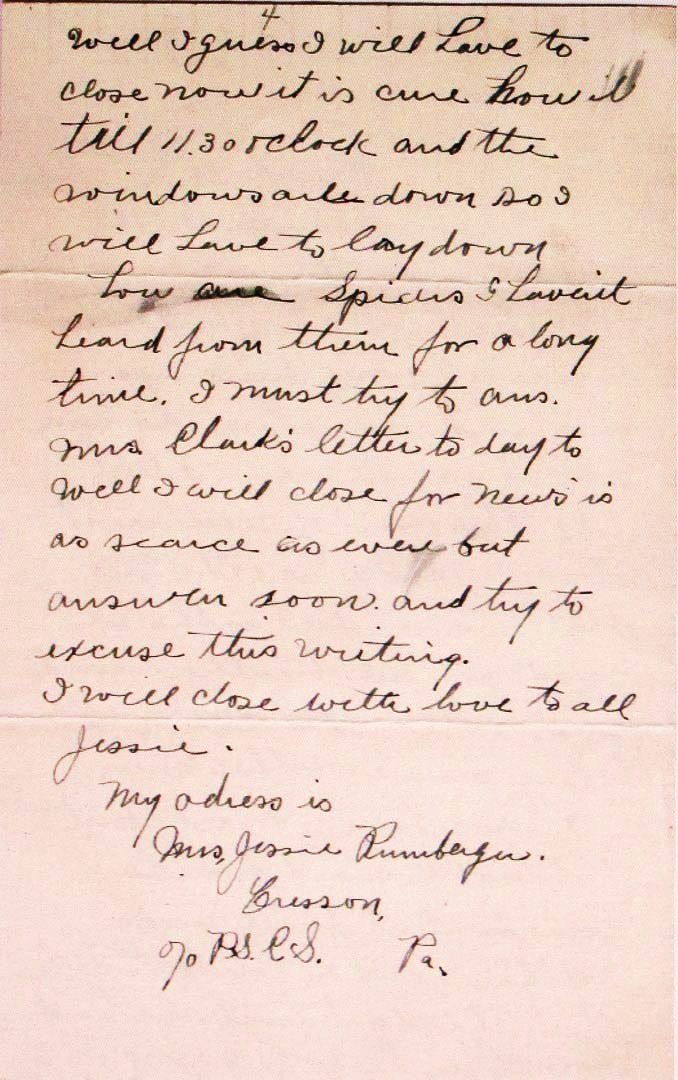 4
Well I guess I will have to
close now it is cure hour
till 11.30 oclock and the
windows are down so I
will have to lay down
How are Spicers I havent
heard from them for a long
time. I must try to ans.
Mrs Clark's letter to day to
Well I will close for news is
as scarce as ever but
answer soon. and try to
excuse this writing.
I will close with love to all
Jessie.
My adress is
Mrs, Jessie Rumberger.
Cresson,
c/o P.S.C.S. Pa.